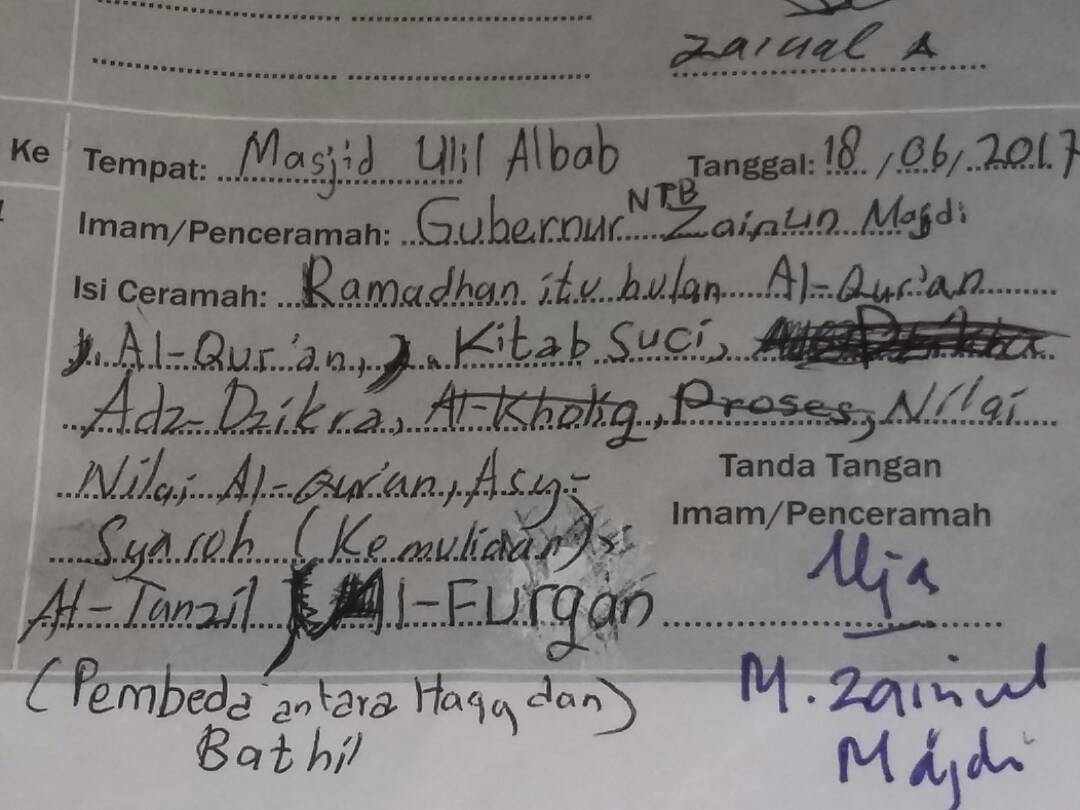 Zainal A
Ke Tempat: Masjid Ulil Albab Tanggal: 18/06/2017
NTB
Imam/Penceramah: Gubernur Zainun Majdi
Isi Ceramah: Ramadhan itu bulan Al-Qur'an
, Al-Qur'an, Kitab Suci,
Adz-Dzikra, Al-Kholiq, Proses, Nilai
Nilai Al-Qur'an, Asy-
Syaroh (Kemuliaan),
At-Tanzil, Al-Furqan
(Pembeda antara Haqq dan)
Bathil
Tanda Tangan
Imam/Penceramah
M. Zainul
Majdi